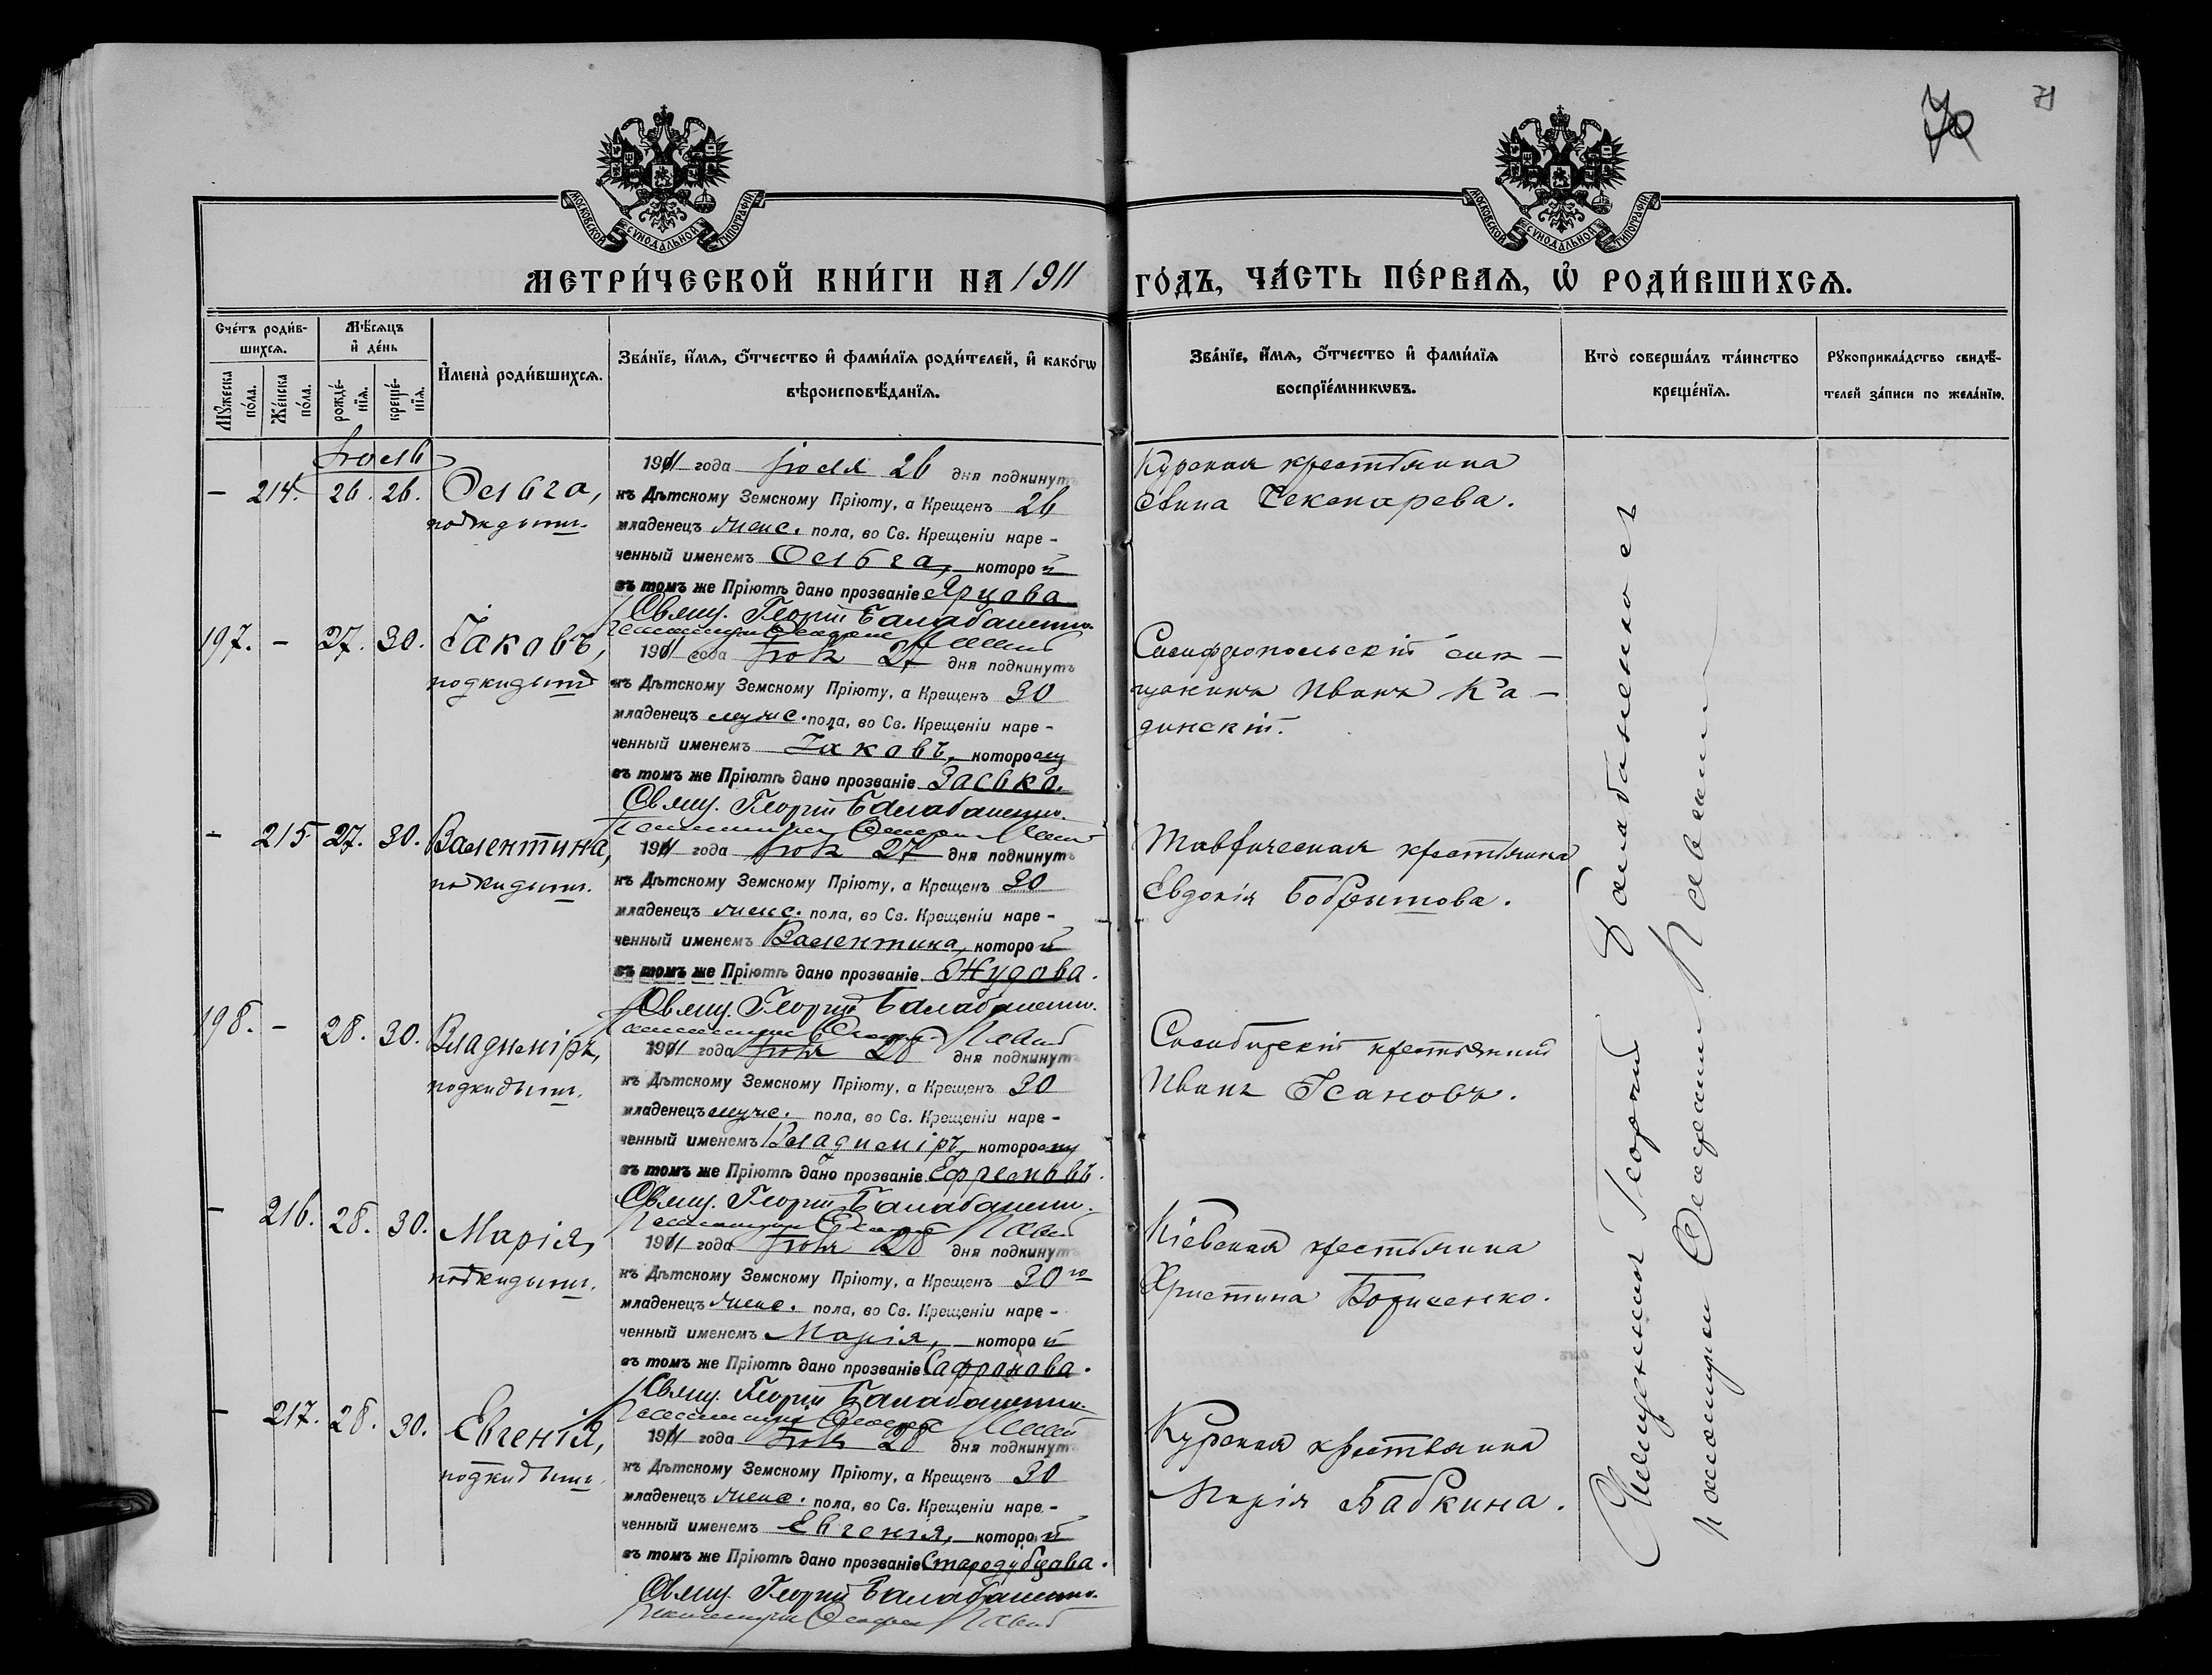 70
71
МОСКОВСКОЙ СѴНОДАЛЬНОЙ ТИПОГРАФІИ
МОСКОВСКОЙ СѴНОДАЛЬНОЙ ТИПОГРАФІИ
МЕТРИ́ЧЕСКОЙ КНИ́ГИ НА 1911 ГО́ДЪ, ЧА́СТЬ ПЕ́РВАѦ, Ѡ҆ РОДИ́ВШИХСѦ.
Сче́тъ роди́в-
шихсѧ.
Мꙋ́жеска по́ла.
Же́нска по́ла.
Мѣ́сѧцъ
и҆ де́нь
рожде́-
нїѧ.
креще́-
нїѧ.
И҆мена̀ роди́вшихсѧ.
Зва́нїе, и҆́мѧ, ѻ҆́тчество и҆ фами́лїѧ роди́телей, и҆ како́гѡ
вѣроисповѣ́данїѧ.
Зва́нїе, и҆́мѧ, ѻ҆́тчество и҆ фами́лїѧ
воспрїе́мникѡвъ.
Кто̀ соверша́лъ та́инство
креще́нїѧ.
Рꙋкоприкла́дство свидѣ́-
телей за́писи по жела́нїю.
Іюль
— 214. 26. 26. Ольга,
подкидыш.
1911 года Іюля 26 дня подкинутъ
къ Дѣтскому Земскому Пріюту, а Крещенъ 26
младенецъ женс. пола, во Св. Крещеніи наре-
ченный именемъ Ольга, которой
въ томъ же Пріютѣ дано прозваніе Ярцова
Свящ. Георгій Балабаненко.
Курская крестьянка
Анна Чекмарева.
197. — 27. 30. Іаковъ,
подкидышъ
1911 года Іюля 27 дня подкинутъ
къ Дѣтскому Земскому Пріюту, а Крещенъ 30
младенецъ мужс. пола, во Св. Крещеніи наре-
ченный именемъ Іаковъ, которому
въ томъ же Пріютѣ дано прозваніе Засько.
Свящ. Георгій Балабаненко.
Симферопольскій мѣ-
щанинъ Иванъ Ка-
динскій.
— 215 27. 30. Валентина,
подкидыш.
1911 года Іюля 27 дня подкинутъ
къ Дѣтскому Земскому Пріюту, а Крещенъ 30
младенецъ женс. пола, во Св. Крещеніи наре-
ченный именемъ Валентина, которой
въ томъ же Пріютѣ дано прозваніе Жудова.
Свящ. Георгій Балабаненко.
Таврическая крестьянка
Евдокія Бобрытова.
198. — 28. 30. Владиміръ,
подкидыш.
1911 года Іюля 28 дня подкинутъ
къ Дѣтскому Земскому Пріюту, а Крещенъ 30
младенецъ мужс. пола, во Св. Крещеніи наре-
ченный именемъ Владиміръ, которому
въ томъ же Пріютѣ дано прозваніе Ефремовъ.
Свящ. Георгій Балабаненко.
крестьянинъ
Иванъ Исановъ.
— 216. 28. 30. Марія,
подкидыш.
1911 года Іюля 28 дня подкинутъ
къ Дѣтскому Земскому Пріюту, а Крещенъ 30го
младенецъ женс. пола, во Св. Крещеніи наре-
ченный именемъ Марія, которой
въ томъ же Пріютѣ дано прозваніе Сафронова.
Свящ. Георгій Балабаненко.
Кіевская крестьянка
Христина
— 217. 28. 30. Евгенія,
подкидыш.
1911 года Іюля 28 дня подкинутъ
къ Дѣтскому Земскому Пріюту, а Крещенъ 30
младенецъ женс. пола, во Св. Крещеніи наре-
ченный именемъ Евгенія, которой
въ томъ же Пріютѣ дано прозваніе Стародубцова.
Свящ. Георгій Балабаненко.
Курская крестьянка
Марія Бабкина.
Священникъ Георгій Балабаненко съ